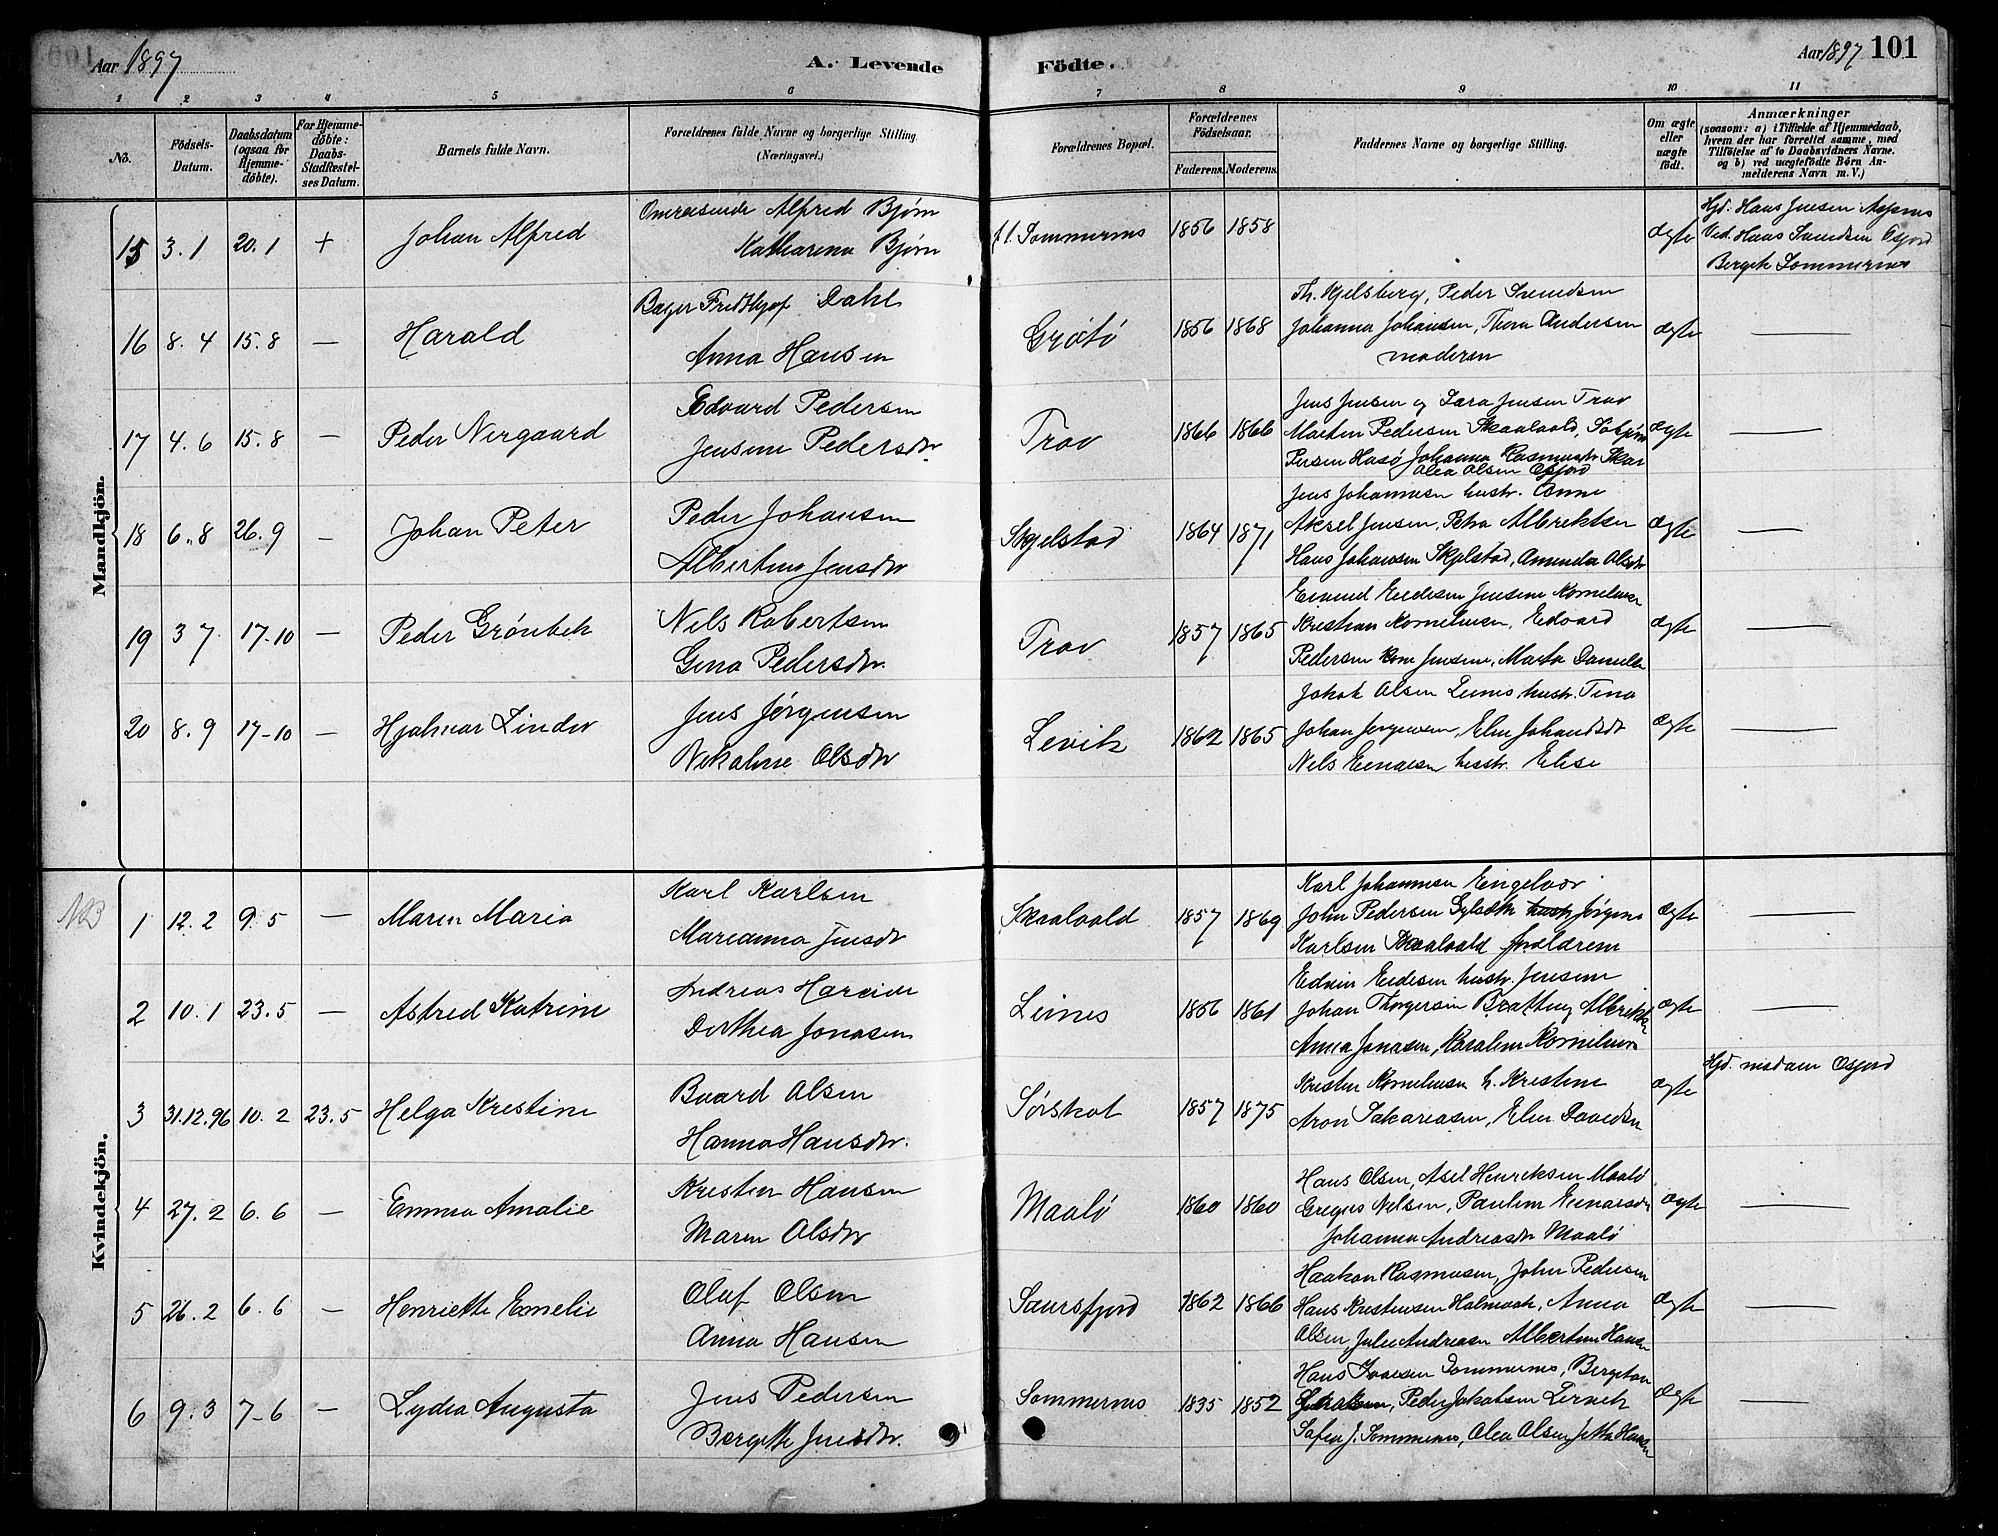 Aar 1897
A. Levende
Födte.
Aar 1897 101
1 2 3 4 5 6 7 8 9 10 11
No.
Födsels-Datum.
Daabsdatum (ogsaa for Hjemmedöbte).
For Hjemmedöbte: Daabs-Stadfæstelses Datum.
Barnets fulde Navn.
Forældrenes fulde Navne og borgerlige Stilling.
(Næringsvei.)
Forældrenes Bopæl.
Forældrenes Födselsaar.
Faderens. Moderens.
Faddernes Navne og borgerlige Stilling.
Om ægte eller uægte födt.
Anmærkninger
(saasom: a) i Tilfælde af Hjemmedaab,
hvem der har forrettet samme, med
Tilföielse af to Daabsvidners Navne.
og b) ved uægtefödte Börn Anmelderens Navn m. V.)
Mandkjön.
Omreisende Alfred Bjørn
15 3.1 20.1 + Johan Alfred
Katharina Bjørn
Sommernes 1856 1858
ægte
Hjd. Hans Jensen
Ved. Hans Svendsen Osfjord
Sommernes
Bager Fredthjof Dahl
16 8.4 15.8 — Harald
Anna Hansen
Grøtø 1856 1868
Th. Kjelsberg, Peder Svendsen
Johanna Johansen, Thora Andersen
moderen
ægte —
Edvard Pedersen
17 4.6 15.8 — Peder Nergaard
Jensine Pedersdtr.
Trov 1866 1866
Jens Jensen og Sara Jensen Trov
Martin Pedersen Skaalvold,
Johanna Rasmusdtr
Olea Olsen Osfjord
ægte —
Peder Johansen
18 6.8 26.9 — Johan Peter
Albertine Jensdtr
Skjelstad 1864 1871
Jens Johannesen hustr. Anne
Aksel Jensen, Petra Albriktsen
Hans Johansen Skjelstad, Amanda Olsdtr
ægte —
Nels Robertsen
19 3 7. 17-10 — Peder Grønbek
Gina Pedersdtr.
Trov 1857 1865
Jensine Kornelius
Kristian Korneliusen, Edvard
Pedersen Jensine, Marta
ægte —
Jens Jørgensen
20 8.9 17-10 — Hjalmar Linder
Nekoline Olsdtr
Levik 1862 1865
Jakob Olsen Leines, hustr. Tina
Johan Jørgensen, Elen Johansdtr
Nels hustr. Elise
ægte —
Kvindekjön.
NB
Karl Karlsen
1 12.2 9.5 — Maren Maria
Marianna Jensdtr
Skaalvold 1857 1869
Karl Johannesen Engelvær
John Pedersen Jørgine
Karlsen Skaalvold forældrene
ægte —
Andreas Hareide
2 10.1 23.5 — Astred Katrine
Dorthea Jonasen
Leines 1856 1861
hustr. Jensine
Johan Albrikts
Anna Jonasen, Karoline Kornelius
ægte —
Baard Olsen
3 31.12.96 10.2 23.5 Helga Kristine
Hanna Hansdtr.
Sørskot 1857 1875
Kristen Korneliusen h. Kristine
Aron Sakariasen, Elen Davidsen
ægte
Hjd. madam Osfjord
Kresten Hansen
4 27.2 6.6 — Emma Amalie
Maren Olsdtr
Maalø 1860 1860
Hans Olsen, Asel Henriksen Maalø
Gregus Nelsen, Pauline
Johanna Andreasdtr Maalø
ægte —
Oluf Olsen
5 26.2 6.6 — Henriette Emelie
Anna Hansen
Saursfjord 1862 1866
Haakon Rasmusen, John Pedersen
Hans Kristensen Holmaak, Anna
Olsen, Julie Andreasen Albertine Hansen
ægte —
Jens Pedersen
6 9.3 7-6 — Lydia Augusta
Bergitte Jensdtr.
Sommernes 1835 1852
Hans Sommernes,
Peder Jakobsen
Sofie J. Sommernes, Olea Olsen,
ægte —